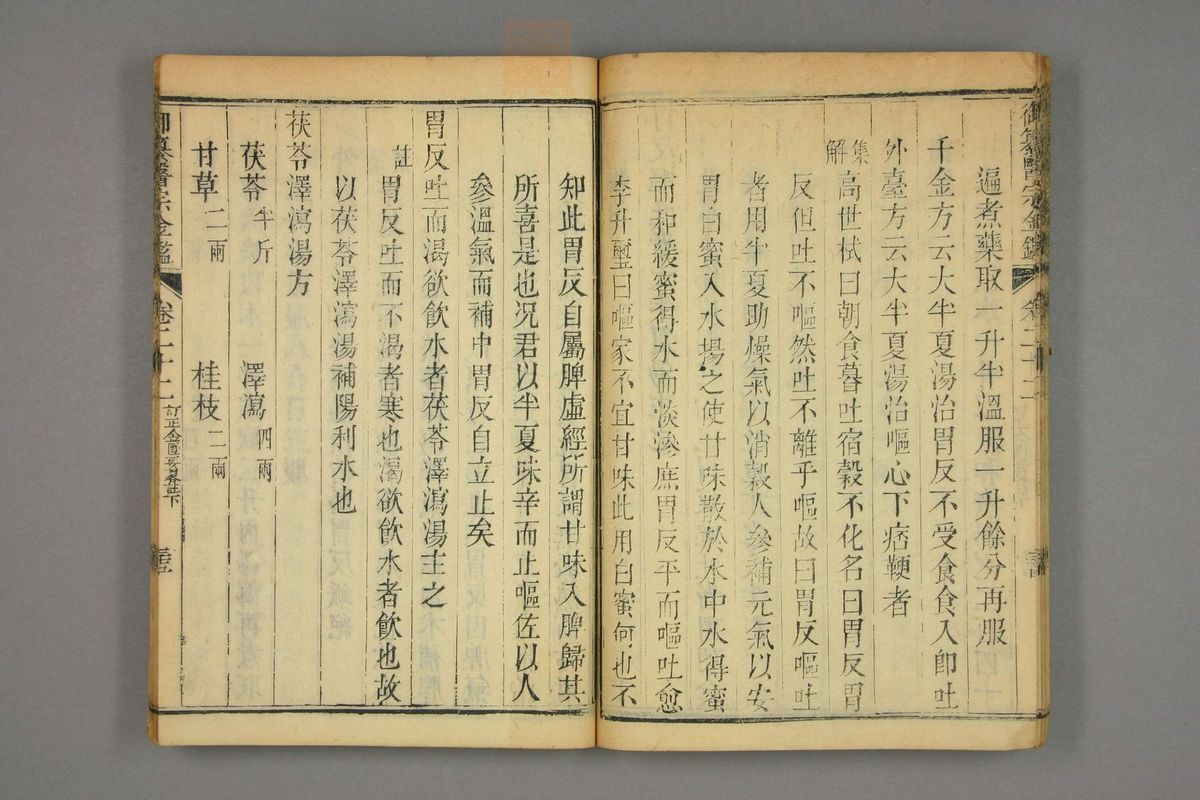 御纂醫宗金鑑 卷二十二
遍煮藥取一升半溫服一升餘分再服
千金方云大半夏湯治胃反不受食食入卽吐
外臺方云大半夏湯治嘔心下痞鞕者
集解高世栻曰朝食暮吐宿穀不化名曰胃反胃
反但吐不嘔然吐不離乎嘔故曰胃反嘔吐
者用半夏助燥氣以消穀人參補元氣以安
胃白蜜入水揚之使甘味散於水中水得蜜
而和緩蜜得水而淡滲庶胃反平而嘔吐愈
李升璽曰嘔家不宜甘味此用白蜜何也不
知此胃反自屬脾虛經所謂甘味入脾歸其
所喜是也況君以半夏味辛而止嘔佐以人
參溫氣而補中胃反自立止矣
胃反吐而渴欲飲水者茯苓澤瀉湯主之
註胃反吐而不渴者寒也渴欲飲水者飲也故
以茯苓澤瀉湯補陽利水也
茯苓澤瀉湯方
茯苓半斤 澤瀉四兩
甘草二兩 桂枝二兩
御纂醫宗金鑑 卷二十二 訂正金匱要畧註下